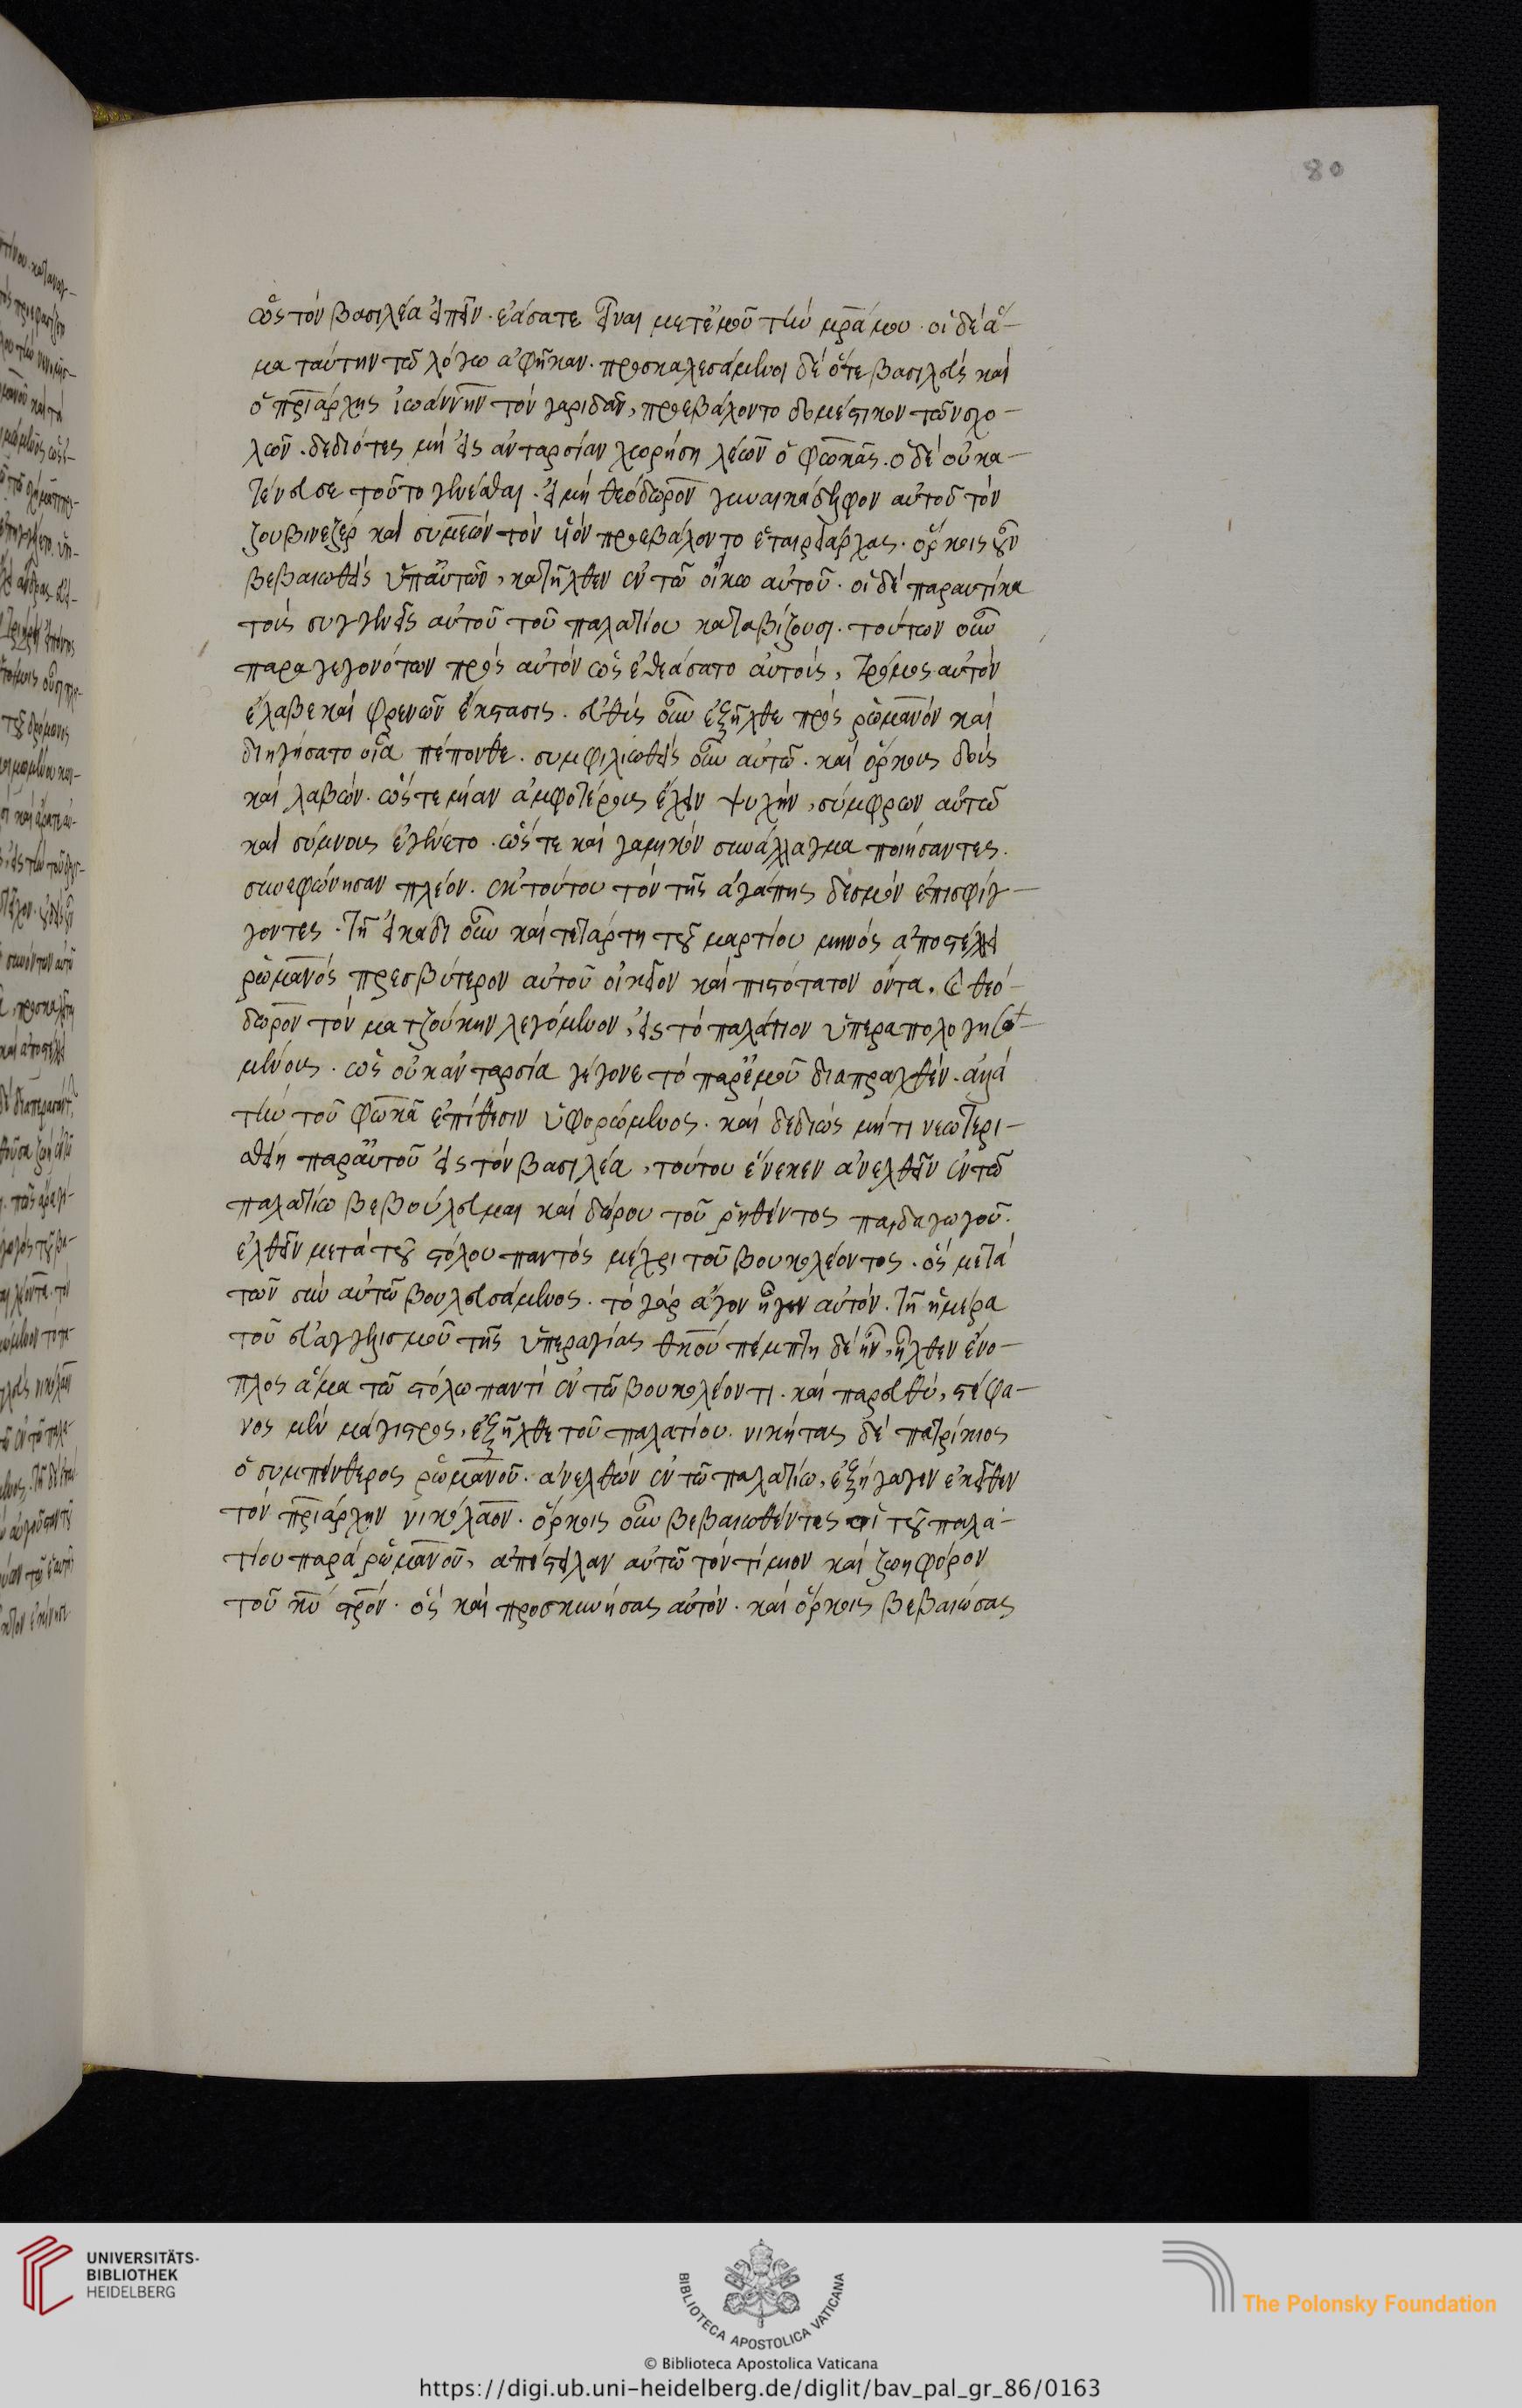 80
ὡς τὸν βασιλέα εἰπεῖν· ἐάσατε εἶναι μετ' ἐμοῦ τὴν μρᾱ μου· οἱ δὲ ἅ-
μα ταύτην τῶ λόγω ἀφῆκαν· προσκαλεσάμενοι δὲ ὅτε βασιλεὺς καὶ
ὁ πριάρχης ἰωάννην τὸν γαριδᾶν, προεβάλοντο δομέστικον τῶν σχο-
λῶν· δεδιότες μὴ εἰς ἀνταρσίαν χωρήση λέων ὁ φωκᾶς· ὁ δὲ οὐ κα-
τένευσε τοῦτο γενέσθαι· εἰ μὴ θεόδωρον γυναικάδελφον αὐτοῦ τὸν
ζουφινεζὲρ καὶ συμεὼν τὸν υἱὸν προεβάλοντο ἑταιρειάρχας· ὅρκοις οὖν
βεβαιωθεὶς ὑπ' αὐτῶν, κατῆλθεν ἐν τῶ οἴκω αὐτοῦ· οἱ δὲ παραυτίκα
τοὺς συγγενεῖς αὐτοῦ τοῦ παλατίου καταβίζουσι· τούτων οὖν
παραγεγονότων πρὸς αὐτὸν ὡς ἐθεάσατο αὐτοὺς, τρόμος αὐτὸν
ἔλαβε καὶ φρενῶν ἔκστασις· εὐθὺς οὖν ἐξῆλθε πρὸς ῥωμανὸν καὶ
διηγήσατο οἷα πέπονθε· συμφιλιωθεὶς οὖν αὐτῶ· καὶ ὅρκους δοὺς
καὶ λαβών· ὥστε μίαν ἀμφοτέρους ἔχειν ψυχὴν, σύμφρων αὐτῶ
καὶ σύμνους ἐγένετο· ὥστε καὶ γαμικὸν συνάλλαγμα ποιήσαντες·
συνεφώνησαν πλέον· ἐκ τούτου τὸν τῆς ἀγάπης δεσμὸν ἐπισφίγ-
γοντες· τῆ εἰκάδι οὖν καὶ τετάρτη τοῦ μαρτίου μηνὸς ἀποστέλλει
ῥωμανὸς πρεσβύτερον αὐτοῦ οἰκεῖον καὶ πιστότατον ὄντα, καὶ θεό-
δωρον τὸν ματζούκην λεγόμενον, εἰς τὸ παλάτιον ὑπεραπολογησα-
μένους· ὡς οὐκ ἀνταρσία γέγονε τὸ παρ' ἐμοῦ διαπραχθέν· ἀλλὰ
τὴν τοῦ φωκᾶ ἐπίθεσιν ὑφορώμενος· καὶ δεδιὼς μή τι νεωτερι-
σθείη παρ' αὐτοῦ εἰς τὸν βασιλέα, τούτου ἕνεκεν ἀνελθεῖν ἐν τῶ
παλατίω βεβούλευμαι καὶ δώρου τοῦ ῥηθέντος παιδαγωγοῦ·
ἐλθεῖν μετὰ τοῦ στόλου παντὸς μέχρι τοῦ βουκολέοντος· ὃς μετὰ
τῶν σὺν αὐτῶ βουλευσάμενος· τὸ γὰρ ἄγον ἦγεν αὐτόν· τῆ ἡμέρα
τοῦ εὐαγγελισμοῦ τῆς ὑπεραγίας θκου πέμπτη δὲ ἦν, ἦλθεν ἔνο-
πλος ἅμα τῶ στόλω παντὶ ἐν τῶ βουκολέοντι· καὶ παρευθὺ, στέφα-
νος μὲν μάγιστρος, ἐξῆλθε τοῦ παλατίου· νικήτας δὲ πατρίκιος
ὁ συμπένθερος ῥωμανοῦ· ἀνελθὼν ἐν τῶ παλατίω, ἐξήγαγεν ἐκεῖθεν
τὸν πριάρχην νικόλαον· ὅρκοις οὖν βεβαιωθέντες οἱ τοῦ παλα-
τίου παρὰ ῥωμανοῦ, ἀπέστειλαν αὐτῶ τὸν τίμιον καὶ ζωηφόρον
τοῦ κυ στρόν· ὃς καὶ προσκυνήσας αὐτόν· καὶ ὅρκοις βεβαιώσας
UNIVERSITÄTS-
BIBLIOTHEK
HEIDELBERG
BIBLIOTECA APOSTOLICA VATICANA
The Polonsky Foundation
© Biblioteca Apostolica Vaticana
https://digi.ub.uni-heidelberg.de/diglit/bav_pal_gr_86/0163